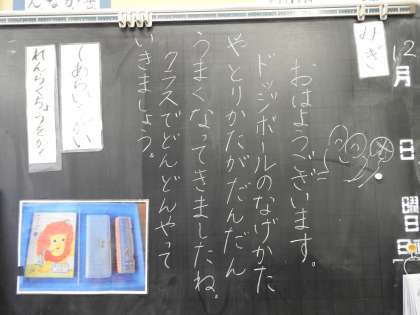 みぎ
12月
日
曜日
おはようございます。
ドッジボールのなげかた
やとりかたがだんだん
うまくなってきましたね。
クラスでどんどんやって
いきましょう。
れんらくちょうをかく